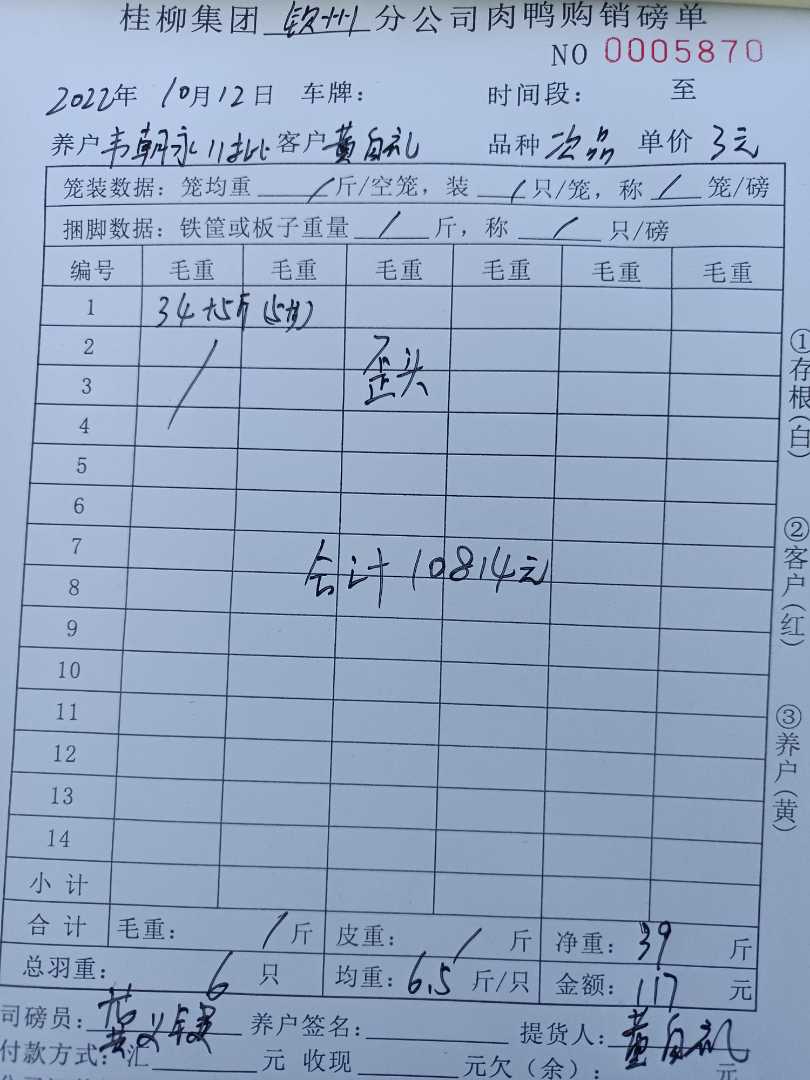 桂柳集团 钦州 分公司肉鸭购销磅单
NO 0005870
2022年 10月12日 车牌: 时间段: 至
养户 韦朝永 11批 客户 黄自礼 品种 次品 单价 3元
笼装数据: 笼均重 / 斤/空笼, 装 / 只/笼, 称 / 笼/磅
捆脚数据: 铁筐或板子重量 / 斤, 称 / 只/磅
编号 毛重 毛重 毛重 毛重 毛重 毛重
1 34+5斤
2 歪头
3
4
5
6
7 合计 10814元
8
9
10
11
12
13
14
小计
合计 毛重: / 斤 皮重: / 斤 净重: 39 斤
总羽重: 6 只 均重: 6.5 斤/只 金额: 117 元
司磅员: 养户签名: 提货人: 黄自礼
付款方式: 汇 元 收现 元欠(余): 元
①存根(白)
②客户(红)
③养户(黄)